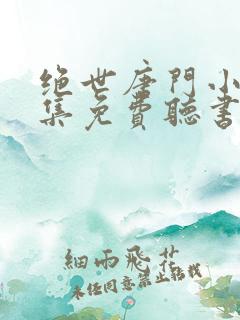 绝世唐門小
集免費聽書
細雨飛花
未经同意禁止转载